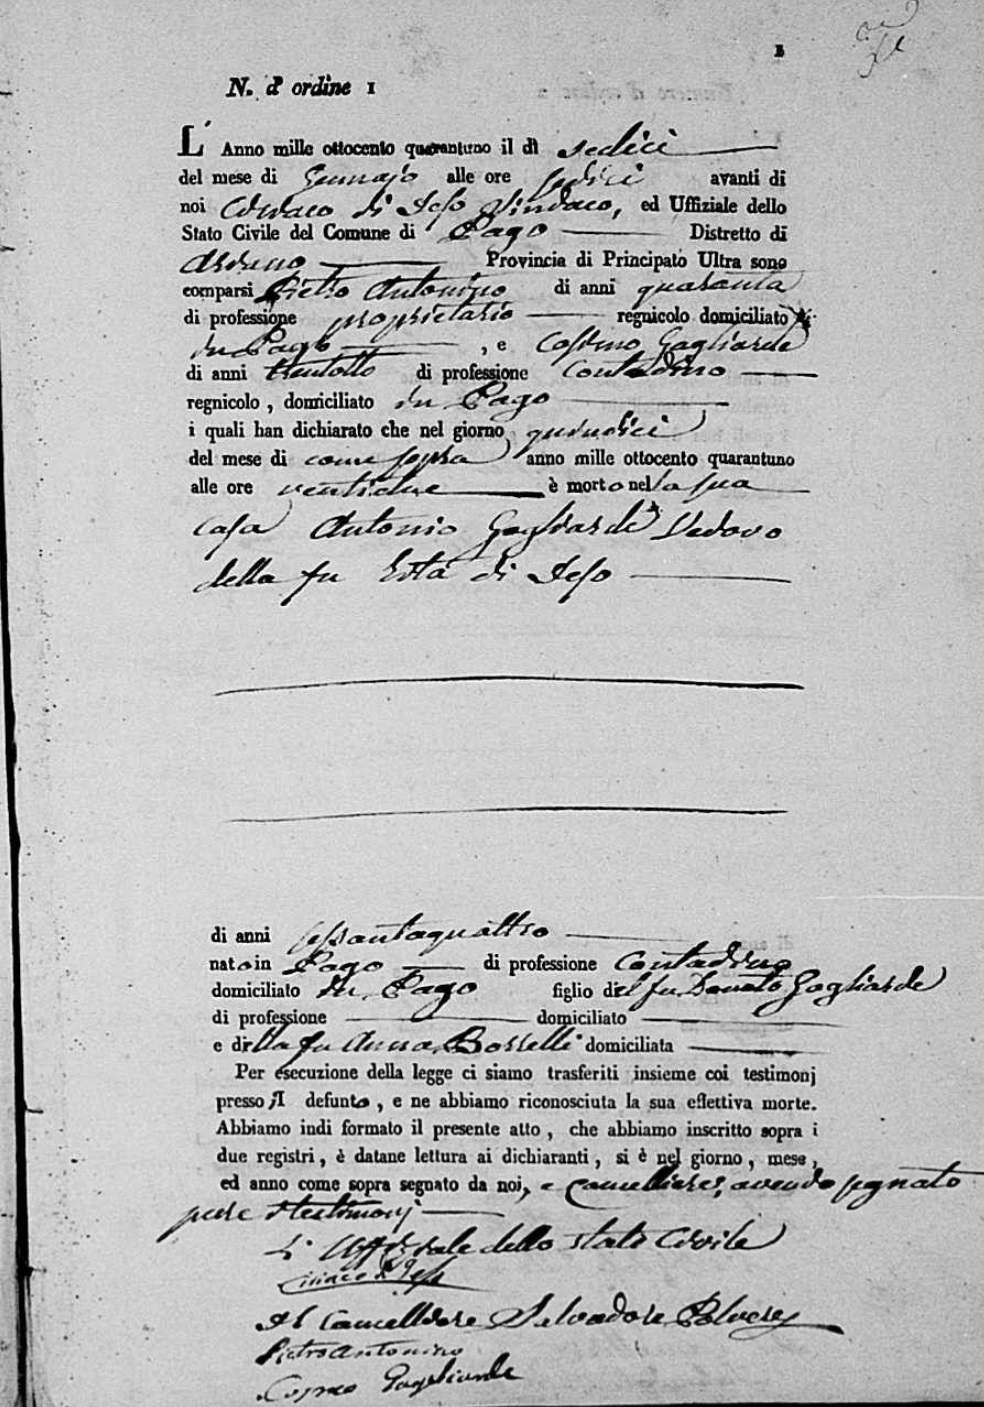 1
N. d' ordine 1
L' Anno mille ottocento quarantuno il dì sedici
del mese di Gennajo alle ore sedici avanti di
noi Ciriaco di Ieso Sindaco, ed Uffiziale dello
Stato Civile del Comune di Pago Distretto di
Provincia di Principato Ultra sono
comparsi Pietro Antonino di anni quaranta
di professione proprietario regnicolo domiciliato
in Pago , e Cosimo Gagliarde
di anni trentotto di professione Contadino
regnicolo , domiciliato in Pago
i quali han dichiarato che nel giorno quindici
del mese di come sopra anno mille ottocento quarantuno
alle ore ventidue è morto nella sua
casa Antonio Gagliarde Vedovo
della fu di Ieso
di anni sessantaquattro
nato in Pago di professione Contadino
domiciliato in Pago figlio del fu Donato Gagliarde
di professione domiciliato
e della fu Anna Borrelli domiciliata
Per esecuzione della legge ci siamo trasferiti insieme coi testimonj
presso il defunto , e ne abbiamo riconosciuta la sua effettiva morte.
Abbiamo indi formato il presente atto , che abbiamo inscritto sopra i
due registri , è datane lettura ai dichiaranti , si è nel giorno , mese ,
ed anno come sopra segnato da noi, e Cancelliere, avendo segnato
pure i testimonj
L' Uffiziale dello stato Civile
Ciriaco di Iesa
Il Cancelliere Salvadore Polvere
Pietro Antonino
Cosimo Gagliarde